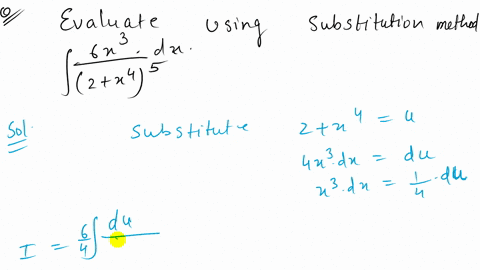 Q Evaluate using Substitution method
∫ 6x³ · dx / (2 + x⁴)⁵
Sol. Substitute 2 + x⁴ = u
4x³ · dx = du
x³ · dx = 1/4 · du
I = 6/4 ∫ du